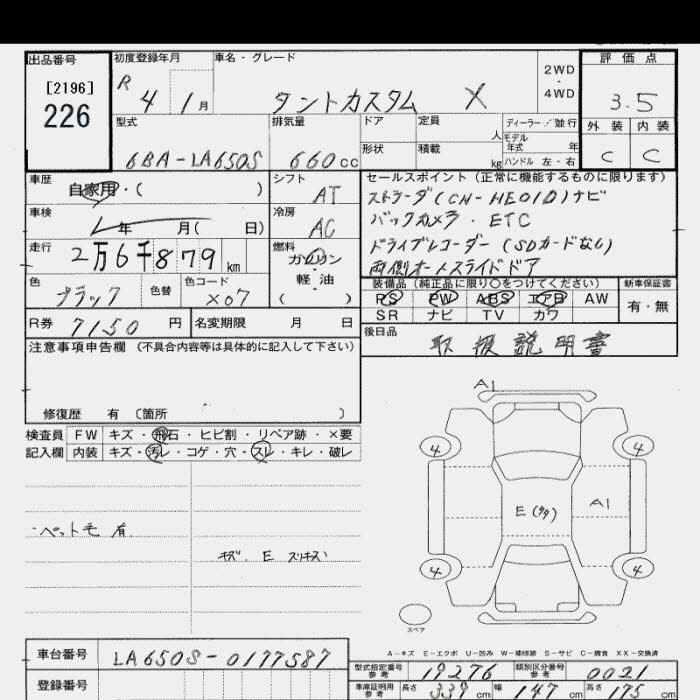 出品番号 初度登録年月 車名・グレード 評価点
[2196] 226 R 4 1月 タントカスタム X 2WD・4WD 3.5
型式 排気量 ドア 定員 人 ディーラー・並行 外装 内装
6BA-LA650S 660cc 形状 積載 kg モデル年式 年 ハンドル 左・右 C C
車歴 自家用・( ) シフト AT セールスポイント (正常に機能するものに限ります)
車検 年 月( 日) 冷房 AC
走行 2万6千879km 燃料 ガソリン・軽油 ( )
色 ブラック 色替 色コード X07
ストラーダ(CN-HE01D)ナビ
バックカメラ・ETC
ドライブレコーダー(SDカードなし)
両側オートスライドドア
装備品 (純正品に限り〇をつけてください) 新車保証書
PS PW ABS エアB AW 有・無
SR ナビ TV カワ
R券 7150円 名変期限 月 日
後日品 取扱説明書
注意事項申告欄 (不具合内容等は具体的に記入して下さい)
修復歴 有 〔箇所 〕
検査員 FW キズ・飛石・ヒビ割・リペア跡・×要
記入欄 内装 キズ・汚レ・コゲ・穴・スレ・キレ・破レ
・ペット毛 有
キズ、E スリキズ
A1
4 4
E(タタ) A1
4 4
スペア
A-キズ E-エクボ U-凹み W-補修跡 S-サビ C-腐食 XX-交換済
車台番号 LA650S-0177587
登録番号
型式指定番号 参考 19276 類別区分番号 参考 0021
車庫証明用 参考 長さ 339cm 幅 147cm 高さ 175cm